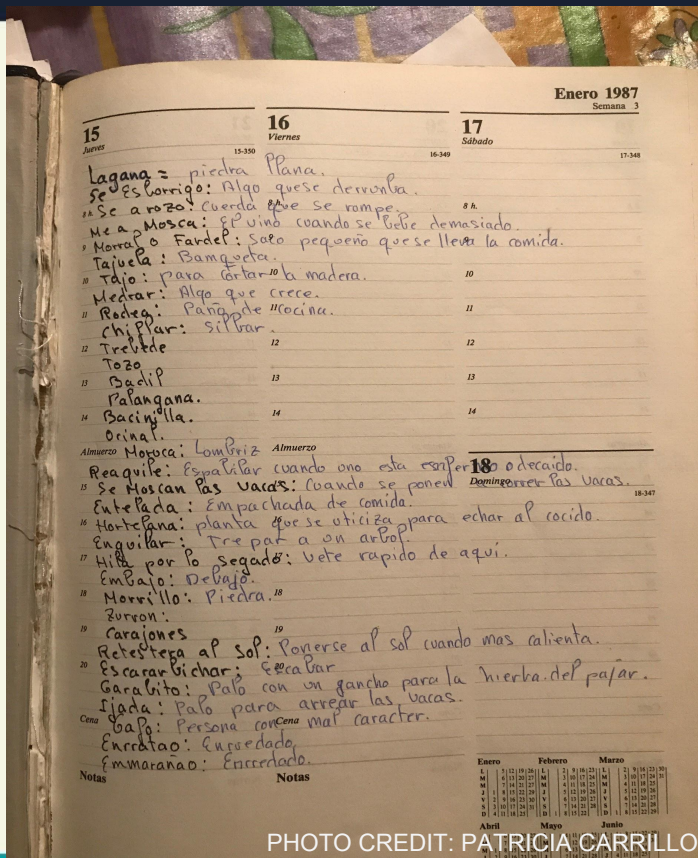 Enero 1987
Semana 3
15
Jueves
15-350
16
Viernes
16-349
17
Sábado
17-348
Lagana = piedra Plana.
Se Esborrigo: Algo quese derrumba.
Se a rozo: Cuerda que se rompe.
8 h.
Me a Mosca: El vino cuando se bebe demasiado.
9 Morral o Fardel: Saco pequeño quese lleva la comida.
Tajuela: Bamqueta.
10 Tajo: para cortar 10 la madera.
10
Medrar: Algo que crece.
11 Rodea: Paño de 11 cocina.
11
Chiflar: Silbar.
12 Trebede
12
12
Tozo
13 Badil
13
13
Palangana.
14 Bacinilla.
14
14
Orinal.
Almuerzo Moruca: Lombriz Almuerzo
Reaquile: Espabilar cuando uno esta o decaido.
18
Domingo
18-347
15 Se Moscan las vacas: Cuando se ponen a correr las vacas.
Entelada: Empachada de comida.
16 Hortelana: planta que se uticiza para echar al cocido.
Enguilar: Trepar a un arbol.
17 Hila por lo segado: vete rapido de aquí.
Embajo: Debajo.
18 Morrillo: Piedra. 18
Zurron:
19 Carajones
19
Retestera al Sol: Ponerse al sol cuando mas calienta.
20 Escarabichar: Escabar
Garabito: Palo con un gancho para la hierba del pajar.
Ijada: Palo para arrear las vacas.
Cena Gafo: Persona con Cena mal caracter.
Enrratao: Enruedado
Emmarañao: Enrredado.
Notas
Notas
Enero Febrero Marzo
Abril Mayo Junio
PHOTO CREDIT: PATRICIA CARRILLO